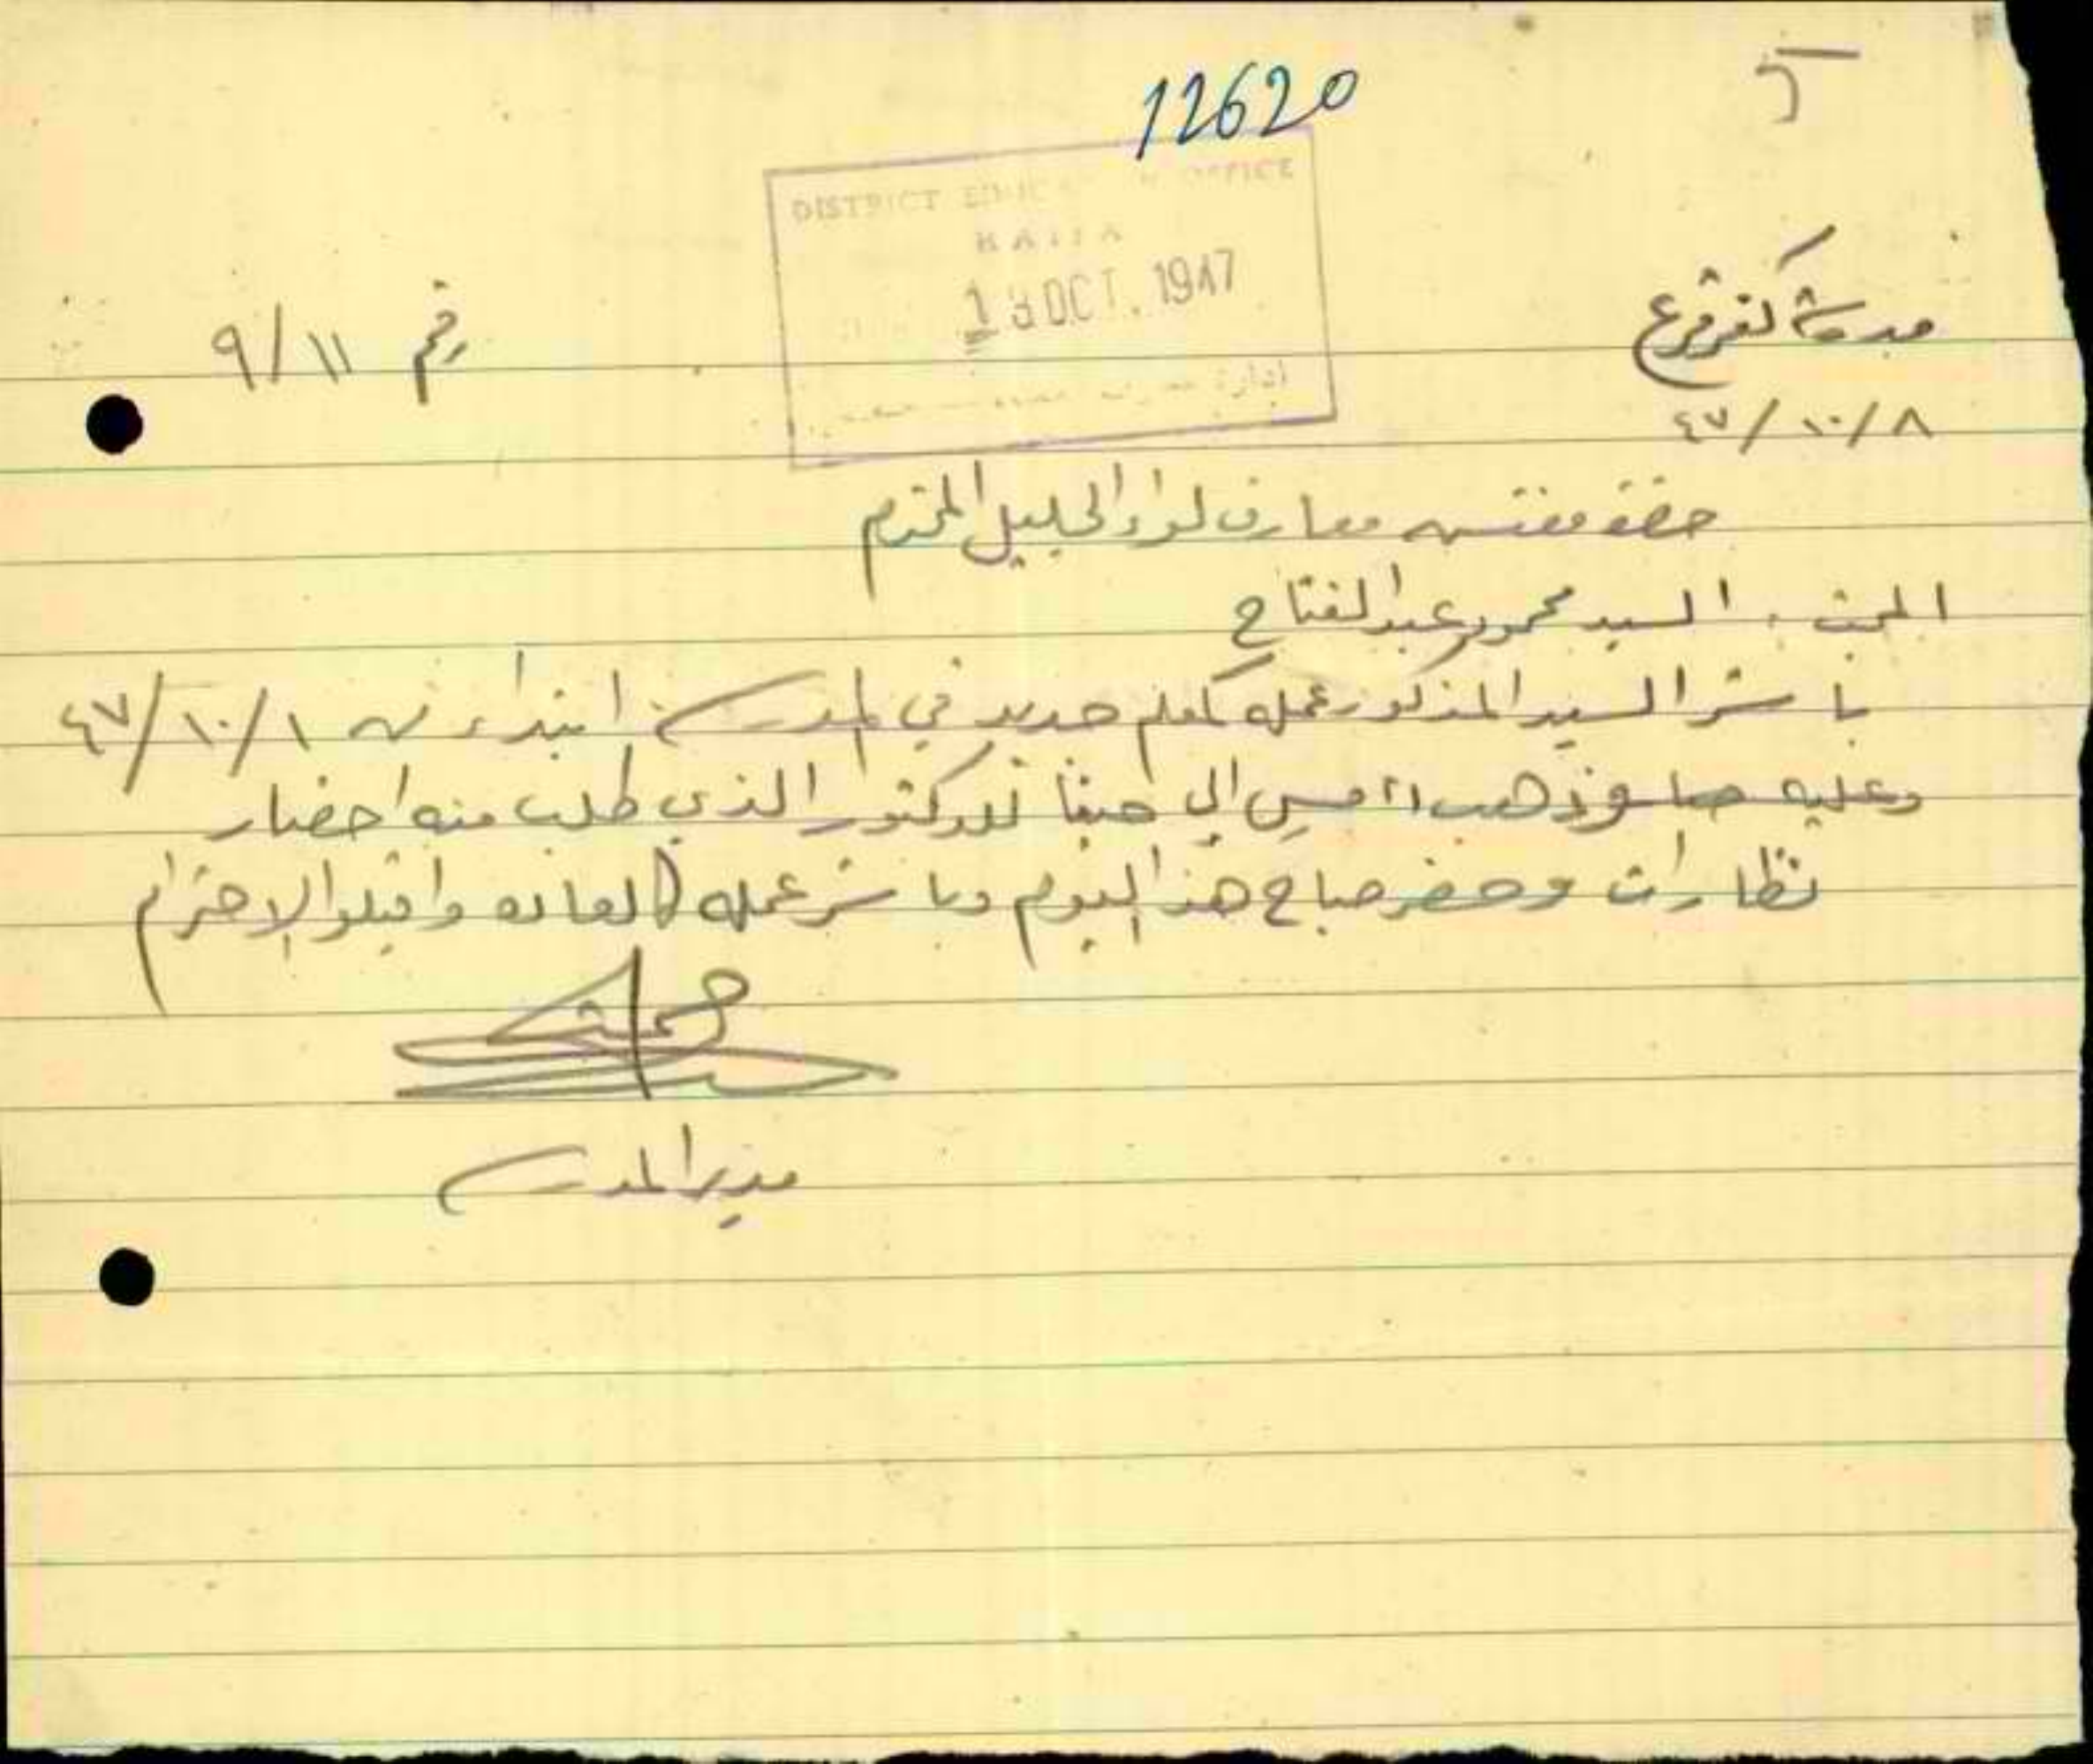 5
12620
DISTRICT EDUC N OFFICE
HAIFA
13 OCT. 1947
إدارة
مدرسة كفر قرع
رقم ٩/١١
٤٧/١٠/٨
حضرة مفتش معارف لواء الجليل المحترم
البحث: السيد محمود عبد الفتاح
باشر السيد المذكور عمله كمعلم جديد في المدرسة ابتداء من ٤٧/١٠/١
وعليه ذهب امس الى حيفا للدكتور الذي طلب منه احضار
نظارات وحضر صباح هذا اليوم وباشر عمله كالعاده واقبلوا الاحترام
مدير المدرسة